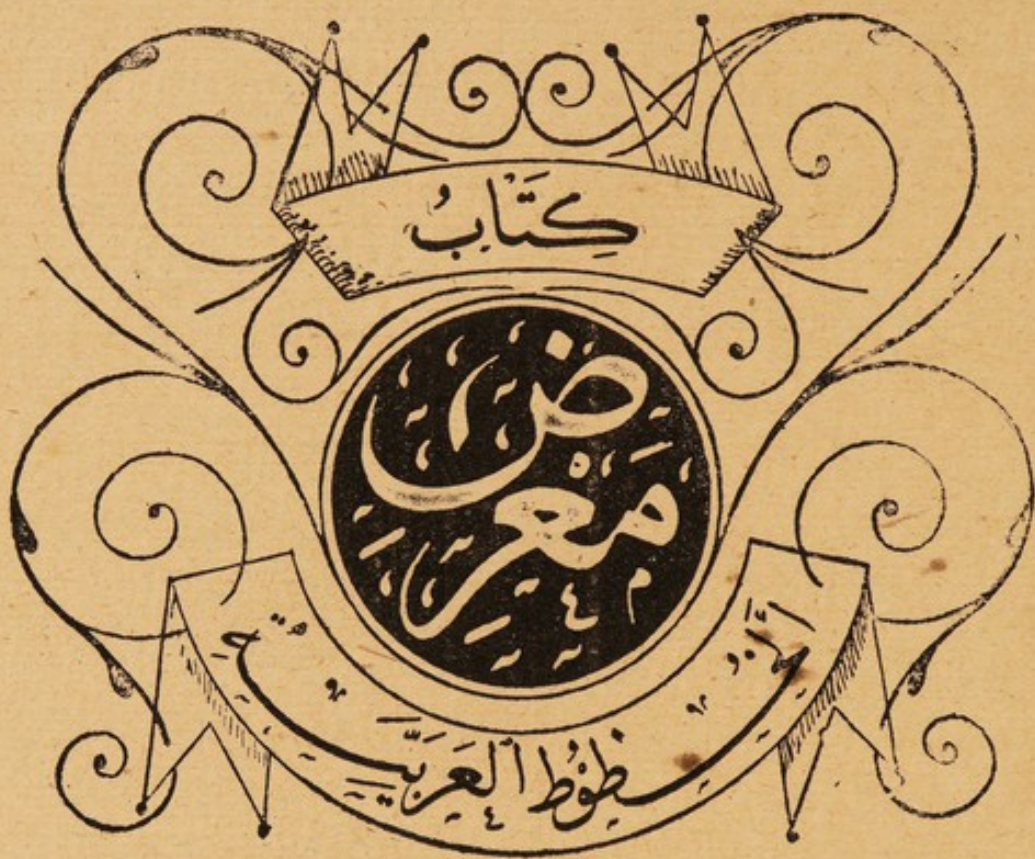 كِتَابُ
مَعْرِضِ
الخُطُوْطِ العَرَبِيَّةِ